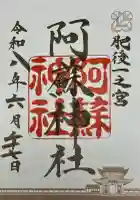 肥後一之宮
阿蘇神社
阿蘇
神社
令和八年六月